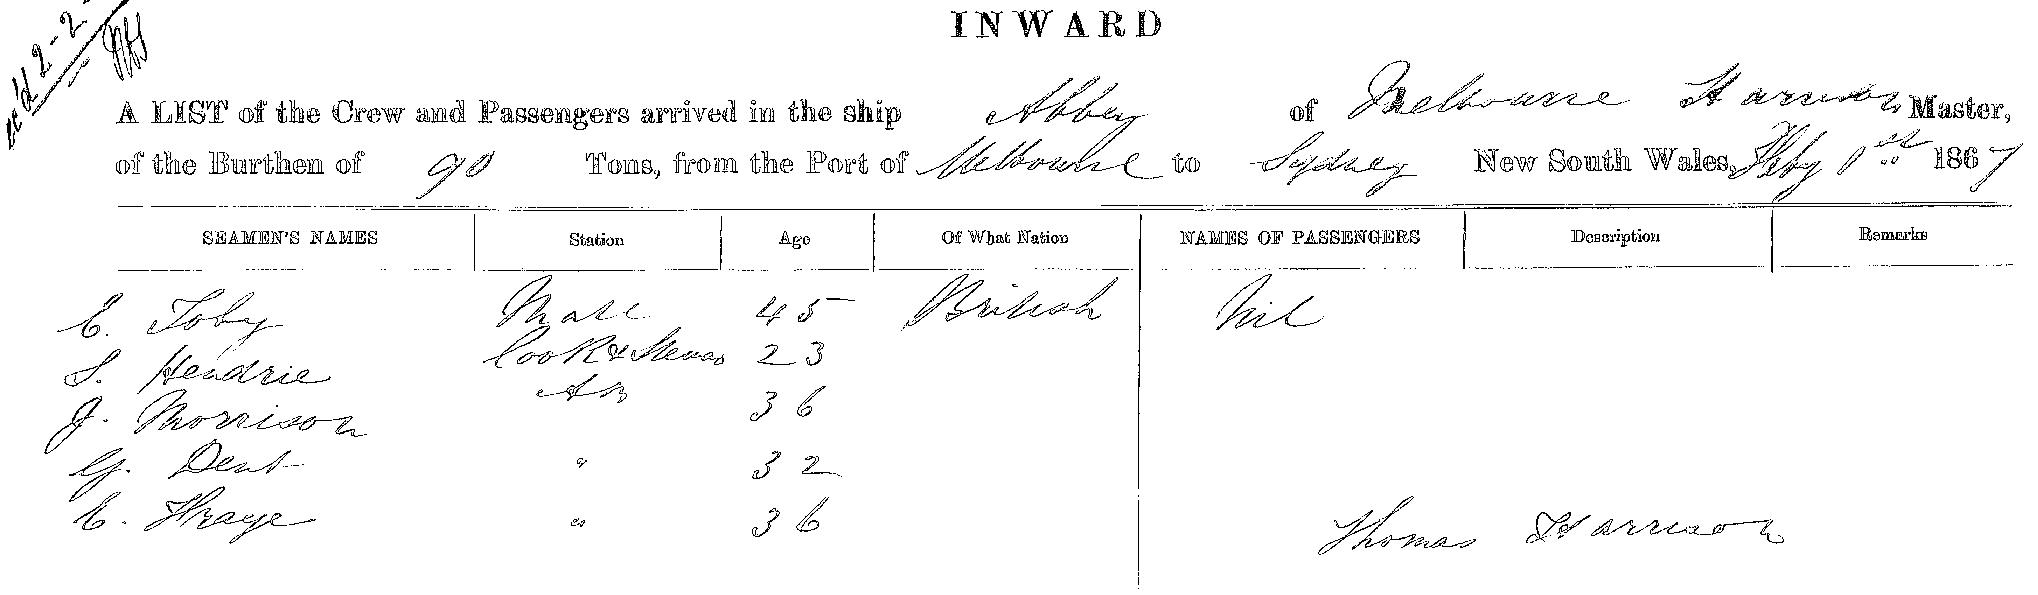 INWARD
rec'd 2-2-
A LIST of the Crew and Passengers arrived in the ship Abbey of Melbourne Harrison Master,
of the Burthen of 90 Tons, from the Port of Melbourne to Sydney New South Wales, Feby 1st 1867
SEAMEN'S NAMES Station Age Of What Nation NAMES OF PASSENGERS Description Remarks
E. Toby Mate 45 British Nil
S. Hendrie Cook & Steward 23
J. Morrison AB 36
G. Dent " 32
E. " 36
Thomas Harrison